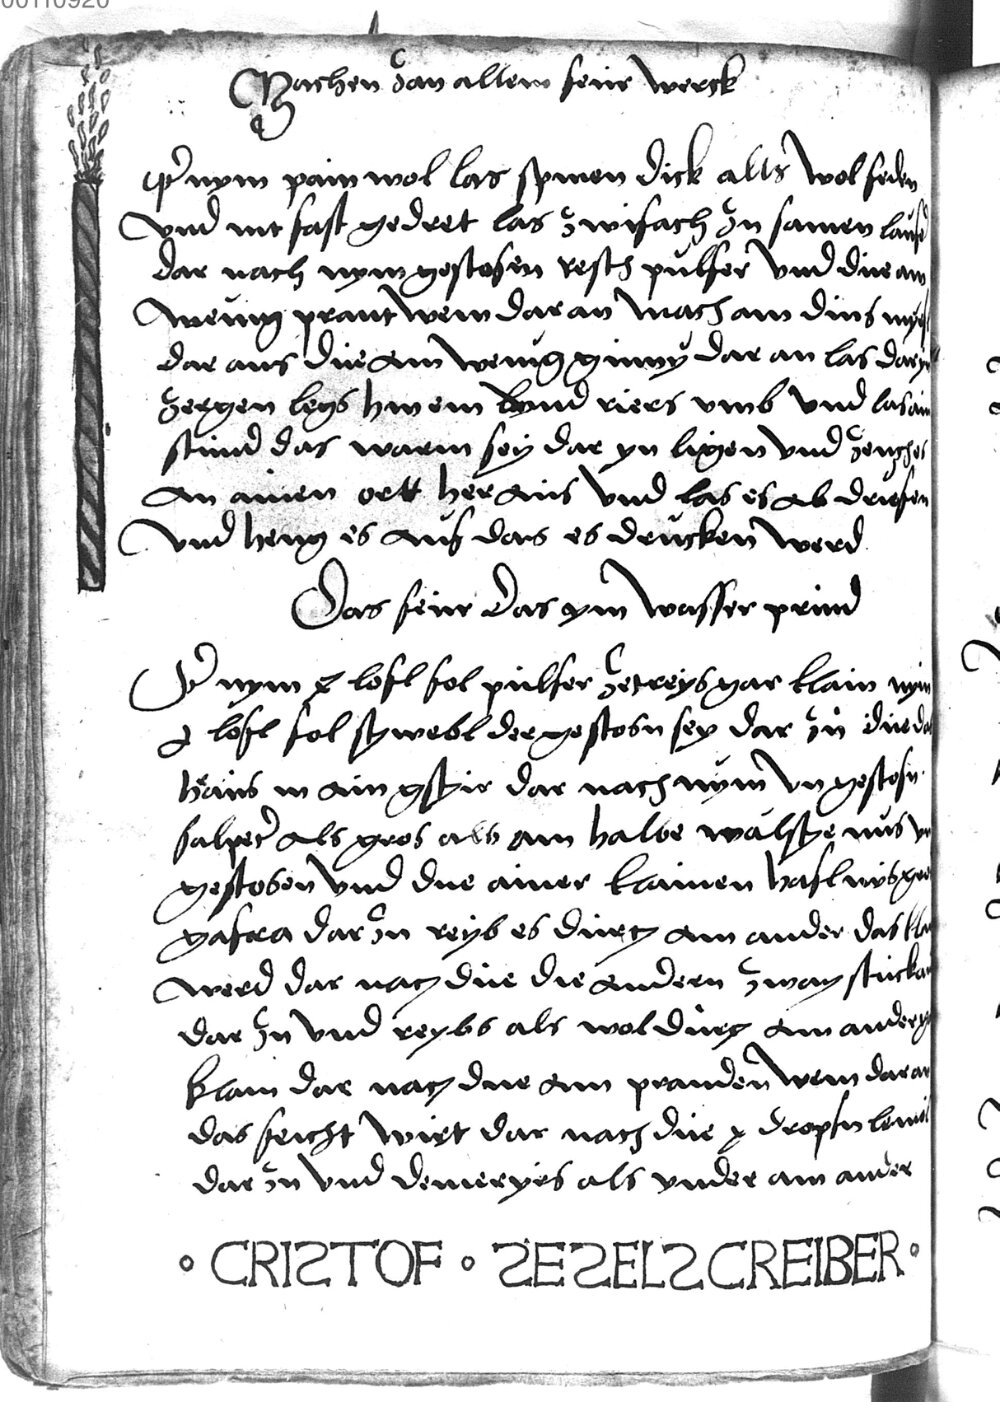 00110920
Machen Zan allem feur werck
Ir nym pain wol las spinen dick alls wol feden
vnd nit fast gedret las zwifach zu samen
dar nach nym gestosen resch pulfer vnd due am
wenig prant wein dar an mach am dins
dar aus due ain wenig gumy dar an las
zergen legs hin ein vnd riers vmb vnd las ain
stund das warm sey dar yn ligen vnd zeuch es
an ainen ortt her aus vnd las es ab drifen
vnd heng es auf das es drucken werd
Das feur das ym wasser prind
Ir nym lofl fol pulfer zetreys gar klain nym
lofl fol schwebl der gestosn sey dar zu due
in ain gschir dar nach nym vn gestosn
salpeter als gros als am halbe walsche nus
gestosen vnd due ainer klainen haslnus
gafra dar zu reyb es durch ain ander das
werd dar nach due die andern zway stuck
dar zu vnd reybs als wol durch ain ander
klain dar nach due ain pranden wein dar an
das feicht wirt dar nach due x dropfn
dar zu vnd als vnder ain ander
° CRISTOF ° SESELSCREIBER °